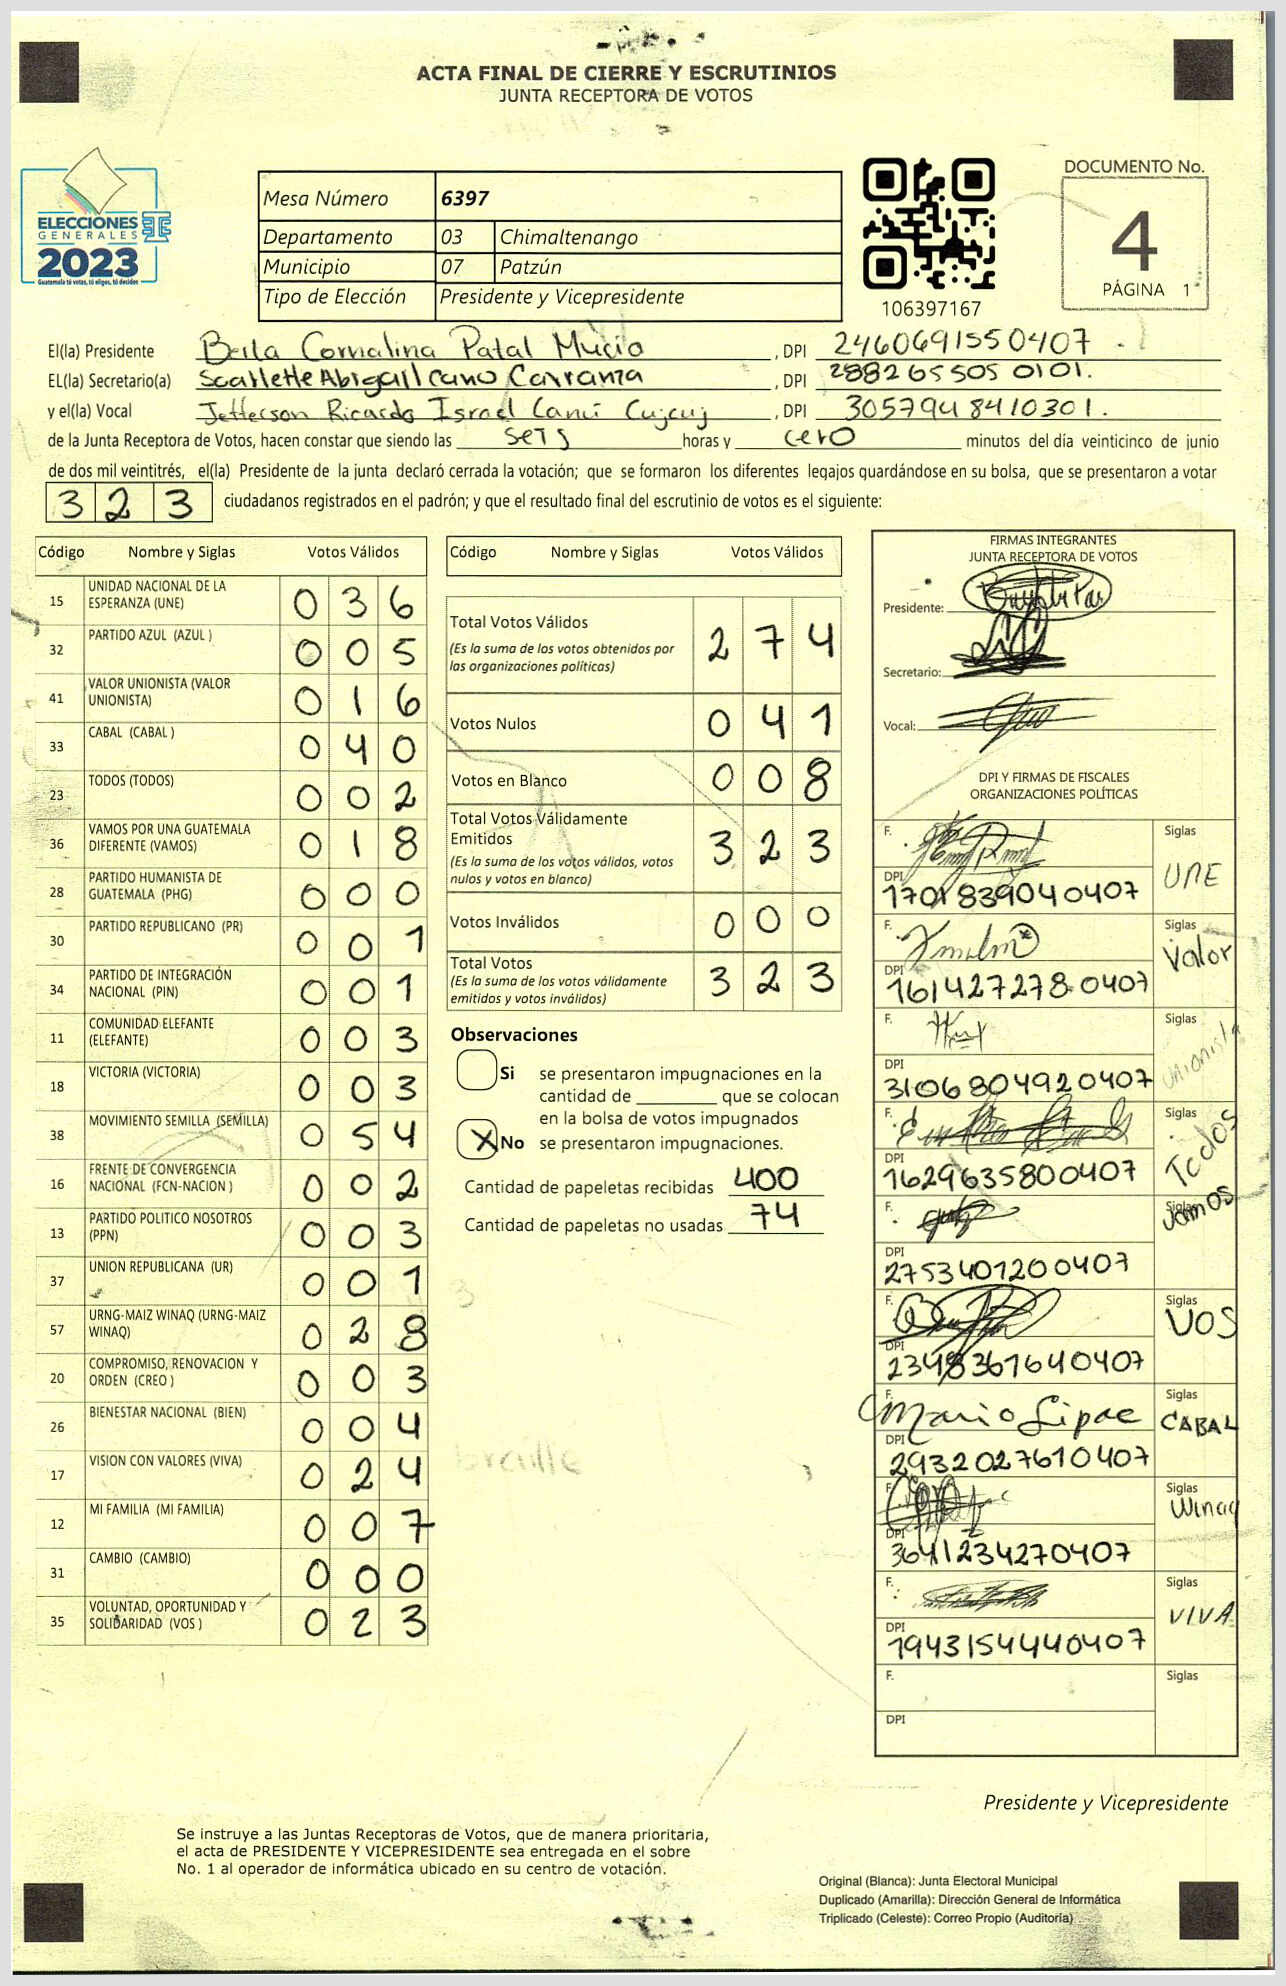 ACTA FINAL DE CIERRE Y ESCRUTINIOS
JUNTA RECEPTORA DE VOTOS
ELECCIONES
GENERALES
2023
Guatemala tú votas, tú eliges, tú decides
Mesa Número 6397
Departamento 03 Chimaltenango
Municipio 07 Patzún
Tipo de Elección Presidente y Vicepresidente
106397167
DOCUMENTO No.
4
PÁGINA 1
El(la) Presidente Berla Cornalina Patal Mucio, DPI 2460691550407
EL(la) Secretario(a) Scarlette Abigail Cano Carranza, DPI 288265505 0101.
y el(la) Vocal Jefferson Ricardo Israel Canú Cujcuj, DPI 3057948410301.
de la Junta Receptora de Votos, hacen constar que siendo las seis horas y cero minutos del día veinticinco de junio
de dos mil veintitrés, el(la) Presidente de la junta declaró cerrada la votación; que se formaron los diferentes legajos quardándose en su bolsa, que se presentaron a votar
3 2 3 ciudadanos registrados en el padrón; y que el resultado final del escrutinio de votos es el siguiente:
Código Nombre y Siglas Votos Válidos
15 UNIDAD NACIONAL DE LA ESPERANZA (UNE) 0 3 6
32 PARTIDO AZUL (AZUL ) 0 0 5
41 VALOR UNIONISTA (VALOR UNIONISTA) 0 1 6
33 CABAL (CABAL ) 0 4 0
23 TODOS (TODOS) 0 0 2
36 VAMOS POR UNA GUATEMALA DIFERENTE (VAMOS) 0 1 8
28 PARTIDO HUMANISTA DE GUATEMALA (PHG) 0 0 0
30 PARTIDO REPUBLICANO (PR) 0 0 1
34 PARTIDO DE INTEGRACIÓN NACIONAL (PIN) 0 0 1
11 COMUNIDAD ELEFANTE (ELEFANTE) 0 0 3
18 VICTORIA (VICTORIA) 0 0 3
38 MOVIMIENTO SEMILLA (SEMILLA) 0 5 4
16 FRENTE DE CONVERGENCIA NACIONAL (FCN-NACION ) 0 0 2
13 PARTIDO POLITICO NOSOTROS (PPN) 0 0 3
37 UNION REPUBLICANA (UR) 0 0 1
57 URNG-MAIZ WINAQ (URNG-MAIZ WINAQ) 0 2 8
20 COMPROMISO, RENOVACION Y ORDEN (CREO ) 0 0 3
26 BIENESTAR NACIONAL (BIEN) 0 0 4
17 VISION CON VALORES (VIVA) 0 2 4
12 MI FAMILIA (MI FAMILIA) 0 0 7
31 CAMBIO (CAMBIO) 0 0 0
35 VOLUNTAD, OPORTUNIDAD Y SOLIDARIDAD (VOS ) 0 2 3
Código Nombre y Siglas Votos Válidos
Total Votos Válidos 2 7 4
(Es la suma de los votos obtenidos por
las organizaciones políticas)
Votos Nulos 0 4 1
Votos en Blanco 0 0 8
Total Votos Válidamente
Emitidos 3 2 3
(Es la suma de los votos válidos, votos
nulos y votos en blanco)
Votos Inválidos 0 0 0
Total Votos 3 2 3
(Es la suma de los votos válidamente
emitidos y votos inválidos)
Observaciones
Si se presentaron impugnaciones en la
cantidad de ________ que se colocan
en la bolsa de votos impugnados
X No se presentaron impugnaciones.
Cantidad de papeletas recibidas 400
Cantidad de papeletas no usadas 74
braille
FIRMAS INTEGRANTES
JUNTA RECEPTORA DE VOTOS
Presidente:
Secretario:
Vocal:
DPI Y FIRMAS DE FISCALES
ORGANIZACIONES POLÍTICAS
F. Siglas UNE
DPI 1701839040407
F. Siglas Valor
DPI 1614272780407
F. Siglas Unionista
DPI 3106804920407
F. Siglas Todos
DPI 1629635800407
F. Siglas Vamos
DPI 2753401200407
F. Siglas VOS
DPI 2348361640407
F. Mario Sipac Siglas CABAL
DPI 2932027610407
F. Siglas Winaq
DPI 3641234270407
F. Siglas VIVA
DPI 1943154440407
F. Siglas
DPI
Presidente y Vicepresidente
Se instruye a las Juntas Receptoras de Votos, que de manera prioritaria,
el acta de PRESIDENTE Y VICEPRESIDENTE sea entregada en el sobre
No. 1 al operador de informática ubicado en su centro de votación.
Original (Blanca): Junta Electoral Municipal
Duplicado (Amarilla): Dirección General de Informática
Triplicado (Celeste): Correo Propio (Auditoría)